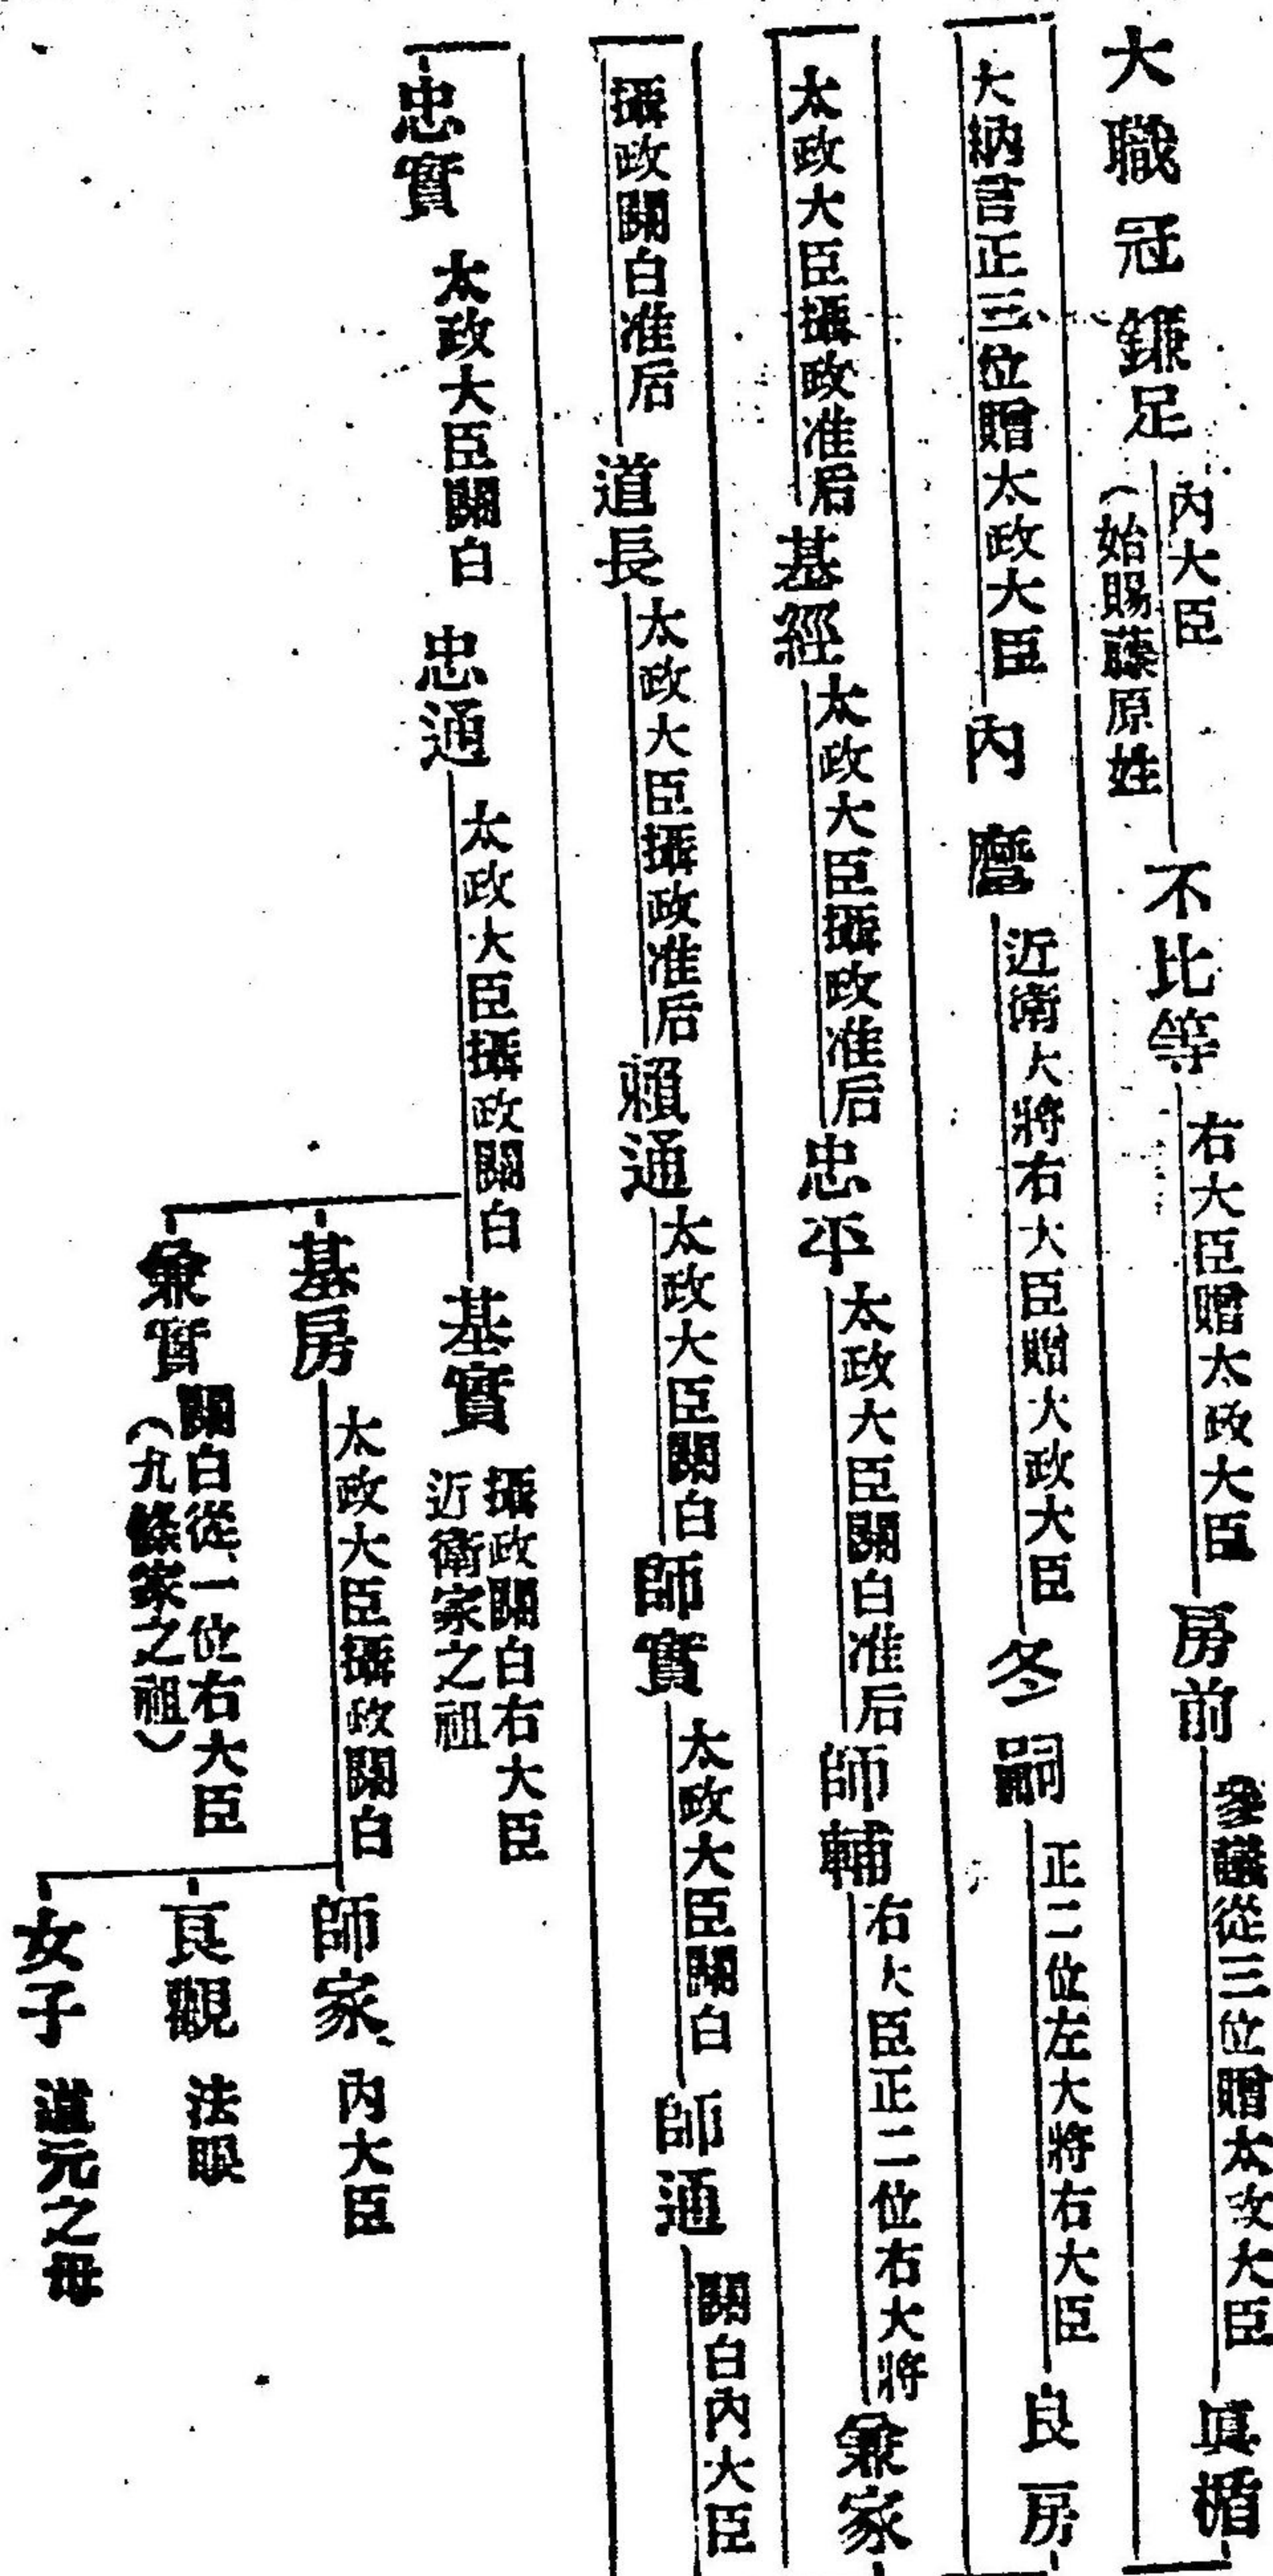 大職冠鎌足 內大臣 不比等 右大臣贈太政大臣 房前 參議從三位贈太政大臣 眞楯
(始賜藤原姓
大納言正三位贈太政大臣 內麿 近衞大將右大臣贈大政大臣 冬嗣 正二位左大將右大臣 良房
太政大臣攝政准后 基經 太政大臣攝政准后 忠平 太政大臣關白准后 師輔 右大臣正二位右大將 兼家
攝政關白准后 道長 太政大臣攝政准后 賴通 太政大臣關白 師實 太政大臣關白 師通 關白內大臣
忠實 太政大臣關白 忠通 太政大臣攝政關白 基實 攝政關白右大臣
近衞家之祖
基房 太政大臣攝政關白 師家 內大臣
兼實 關白從一位右大臣
(九條家之祖)
良觀 法眼
女子 道元之母